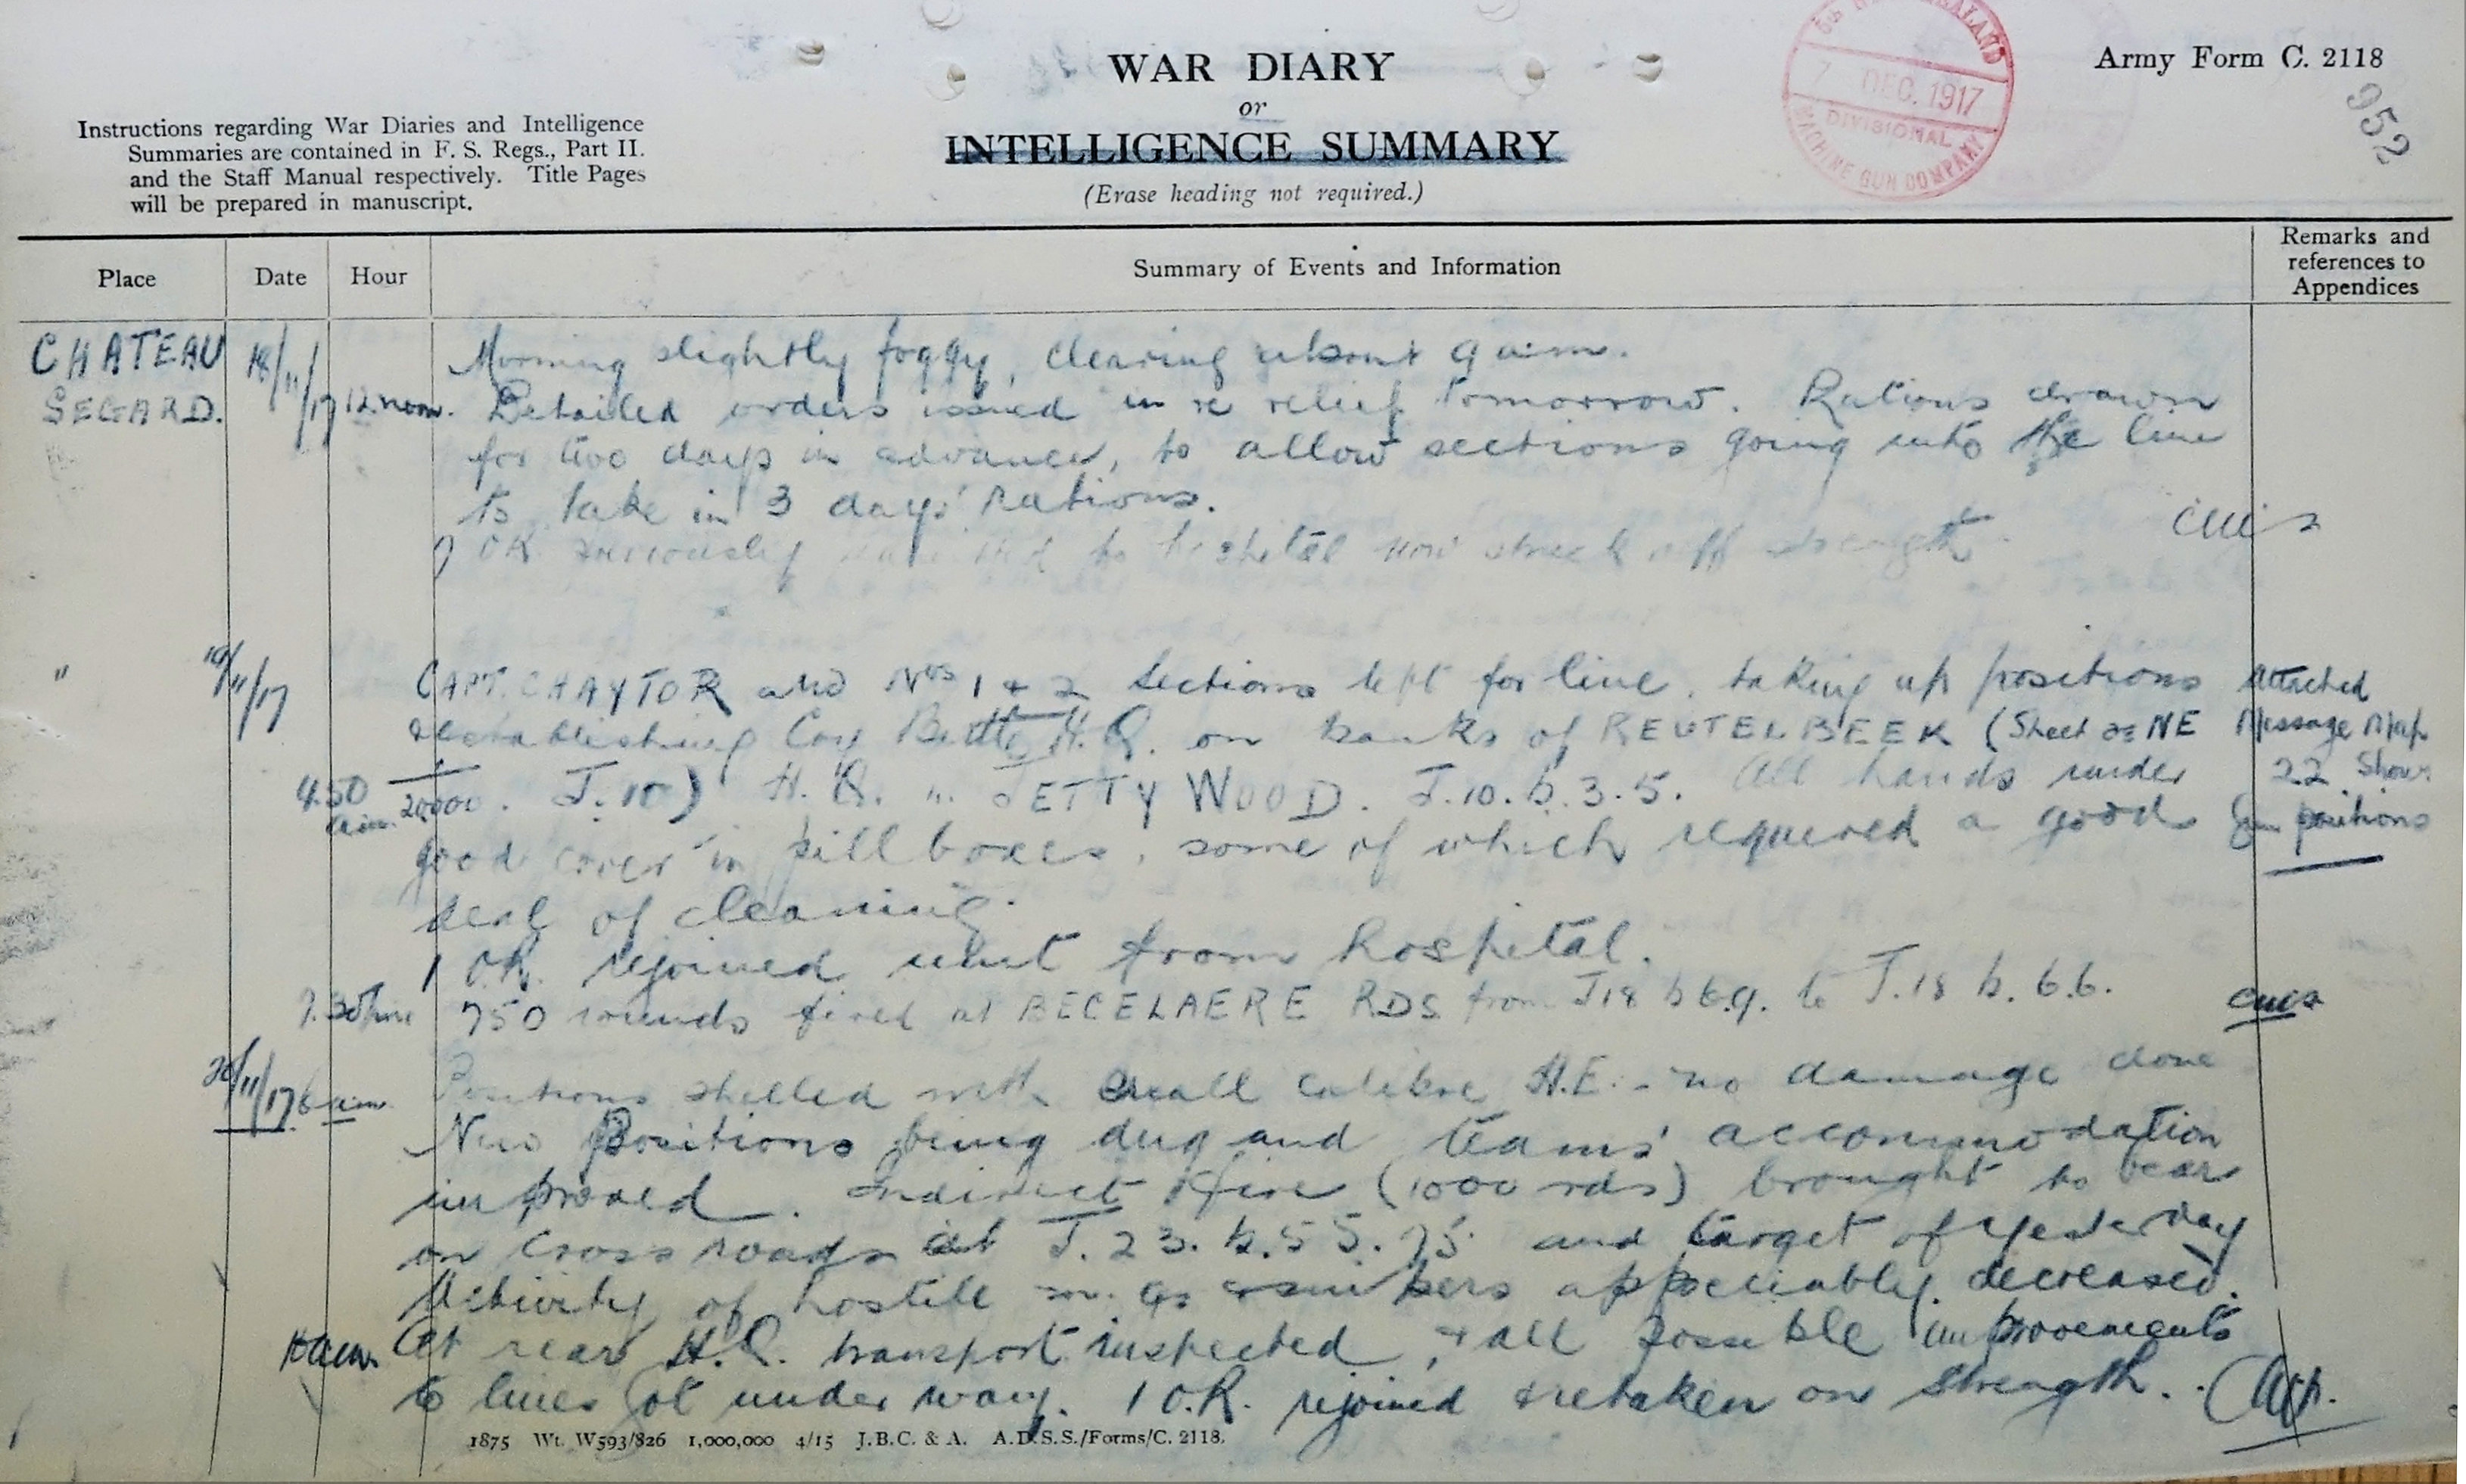 WAR DIARY
or
INTELLIGENCE SUMMARY
(Erase heading not required.)
Army Form C. 2118
952
7 DEC. 1917
DIVISIONAL
MACHINE GUN COMPANY
Instructions regarding War Diaries and Intelligence
Summaries are contained in F. S. Regs., Part II.
and the Staff Manual respectively. Title Pages
will be prepared in manuscript.
Place Date Hour Summary of Events and Information Remarks and references to Appendices
CHATEAU 18/11/17 Morning slightly foggy, clearing about 9 a.m.
SEGARD. 12 noon. Detailed orders issued in re relief tomorrow. Rations drawn
for two days in advance, to allow sections going into the line
to take in 3 days' rations.
9 OR previously to hospital now struck off strength
" 19/11/17 CAPT. CHAYTOR and Nos 1 & 2 Sections left for line, taking up positions Attached
establishing Coy Battle H.Q. on banks of REUTELBEEK (Sheet 28 NE Message Map
4.50 a.m. 1/20000. J.10) H.Q. in JETTY WOOD. J.10.b.3.5. All hands under 22 Shows
good cover in pill boxes, some of which required a good Gun positions
deal of cleaning.
1 OR. rejoined unit from hospital.
7.30 pm 750 rounds fired at BECELAERE RDS from J18 b 6.9. to J.18 b. 6.6.
20/11/17 6 a.m. Positions shelled with small calibre H.E. - no damage done
New Positions being dug and teams' accommodation
improved. Indirect fire (1000 rds) brought to bear
on cross roads at J.23.b.55.75 and target of yesterday
Activity of hostile m. gs & snipers appreciably decreased.
At rear H.Q. transport inspected, & all possible improvements
to lines got under way. 1 O.R. rejoined & retaken on strength.
1875 Wt. W593/826 1,000,000 4/15 J.B.C. & A. A.D.S.S./Forms/C. 2118.